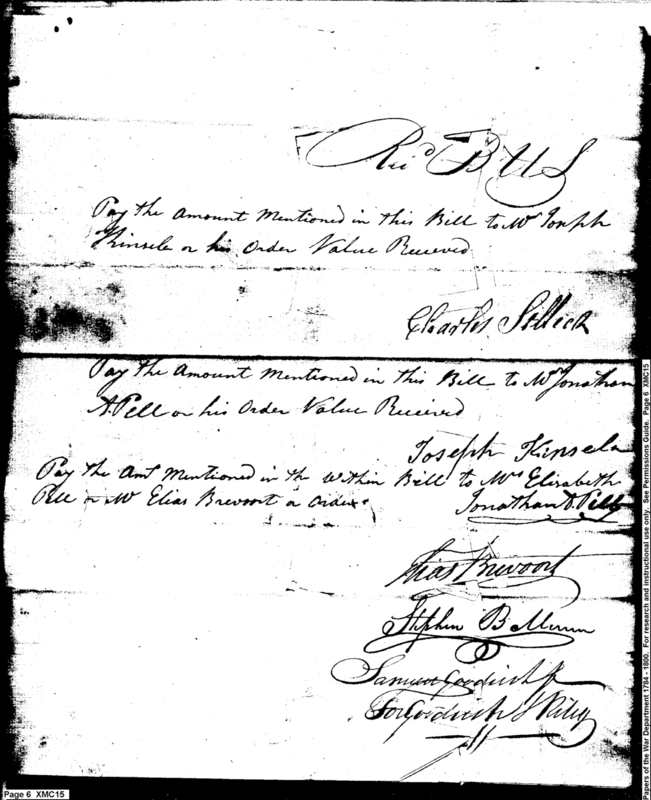 Rec'd B U S
Pay the Amount Mentioned in this Bill to Mr Joseph
Kinsela or his Order Value Received
Charles Selleck
Pay the Amount Mentioned in this Bill to Mr Jonathan
A. Pell or his Order Value Received
Joseph Kinsela
Pay the Amt Mentioned in the Within Bill to Mrs Elizabeth
Pell or Mr Elias Brevoort or Order
Jonathan A. Pell
Elias Brevoort
Stephen B
Samuel Goodrich Jr
For Goodrich & Riley
Page 6 XMC15
Papers of the War Department 1784 - 1800. For research and instructional use only. See Permissions Guide. Page 6 XMC15